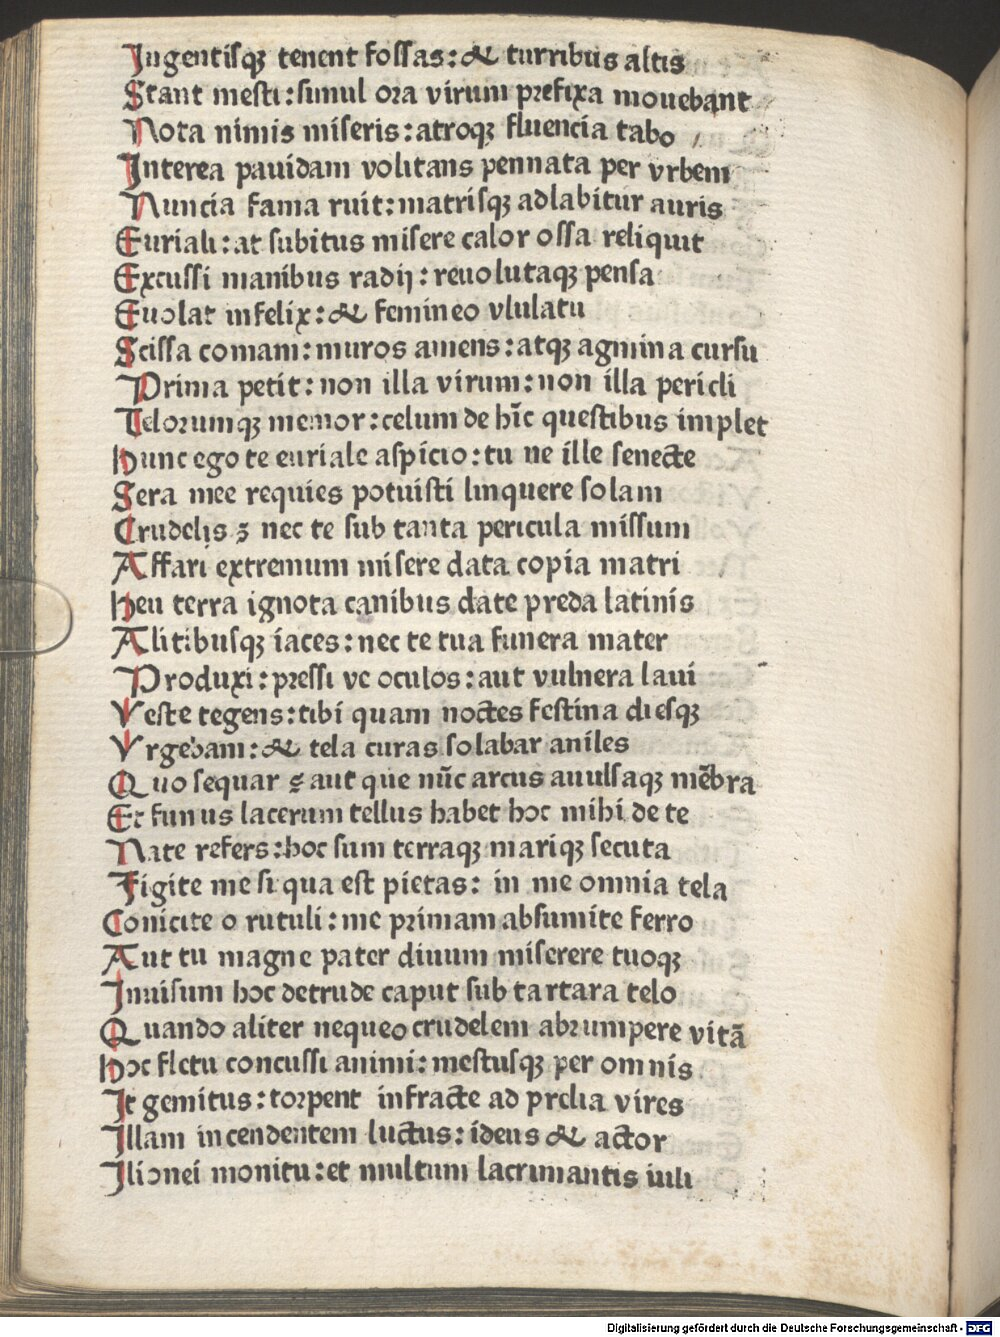 Ingentisqꝫ tenent fossas:& turribus altis
Stant mesti:simul ora virum prefixa mouebant
Nota nimis miseris:atroqꝫ fluencia tabo
Interea pauidam volitans pennata per vrbem
Nuncia fama ruit:matrisqꝫ adlabitur auris
Euriali:at subitus misere calor ossa reliquit
Excussi manibus radij:reuolutaqꝫ pensa
Euolat infelix:& femineo vlulatu
Scissa comam:muros amens:atqꝫ agmina cursu
Prima petit:non illa virum:non illa pericli
Telorumqꝫ memor:celum de hīc questibus implet
Hunc ego te euriale aspicio:tu ne ille senecte
Sera mee requies potuisti linquere solam
Crudelis ꝫ nec te sub tanta pericula missum
Affari extremum misere data copia matri
Heu terra ignota canibus date preda latinis
Alitibusqꝫ iaces:nec te tua funera mater
Produxi:pressi ve oculos:aut vulnera laui
Veste tegens:tibi quam noctes festina diesqꝫ
Vrgebam:& tela curas solabar aniles
Quo sequar ꝫ aut que nūc arcus auulsaqꝫ mēbra
Et funus lacerum tellus habet hoc mihi de te
Nate refers:hoc sum terraqꝫ mariqꝫ secuta
Figite me si qua est pietas: in me omnia tela
Conicite o rutuli:me primam absumite ferro
Aut tu magne pater diuum miserere tuoqꝫ
Inuisum hoc detrude caput sub tartara telo
Quando aliter nequeo crudelem abrumpere vitā
Hoc fletu concussi animi:mestusqꝫ per omnis
It gemitus:torpent infracte ad prelia vires
Illam incendentem luctus:ideus & actor
Ilionei monitu:et multum lacrimantis iuli
Digitalisierung gefördert durch die Deutsche Forschungsgemeinschaft - DFG